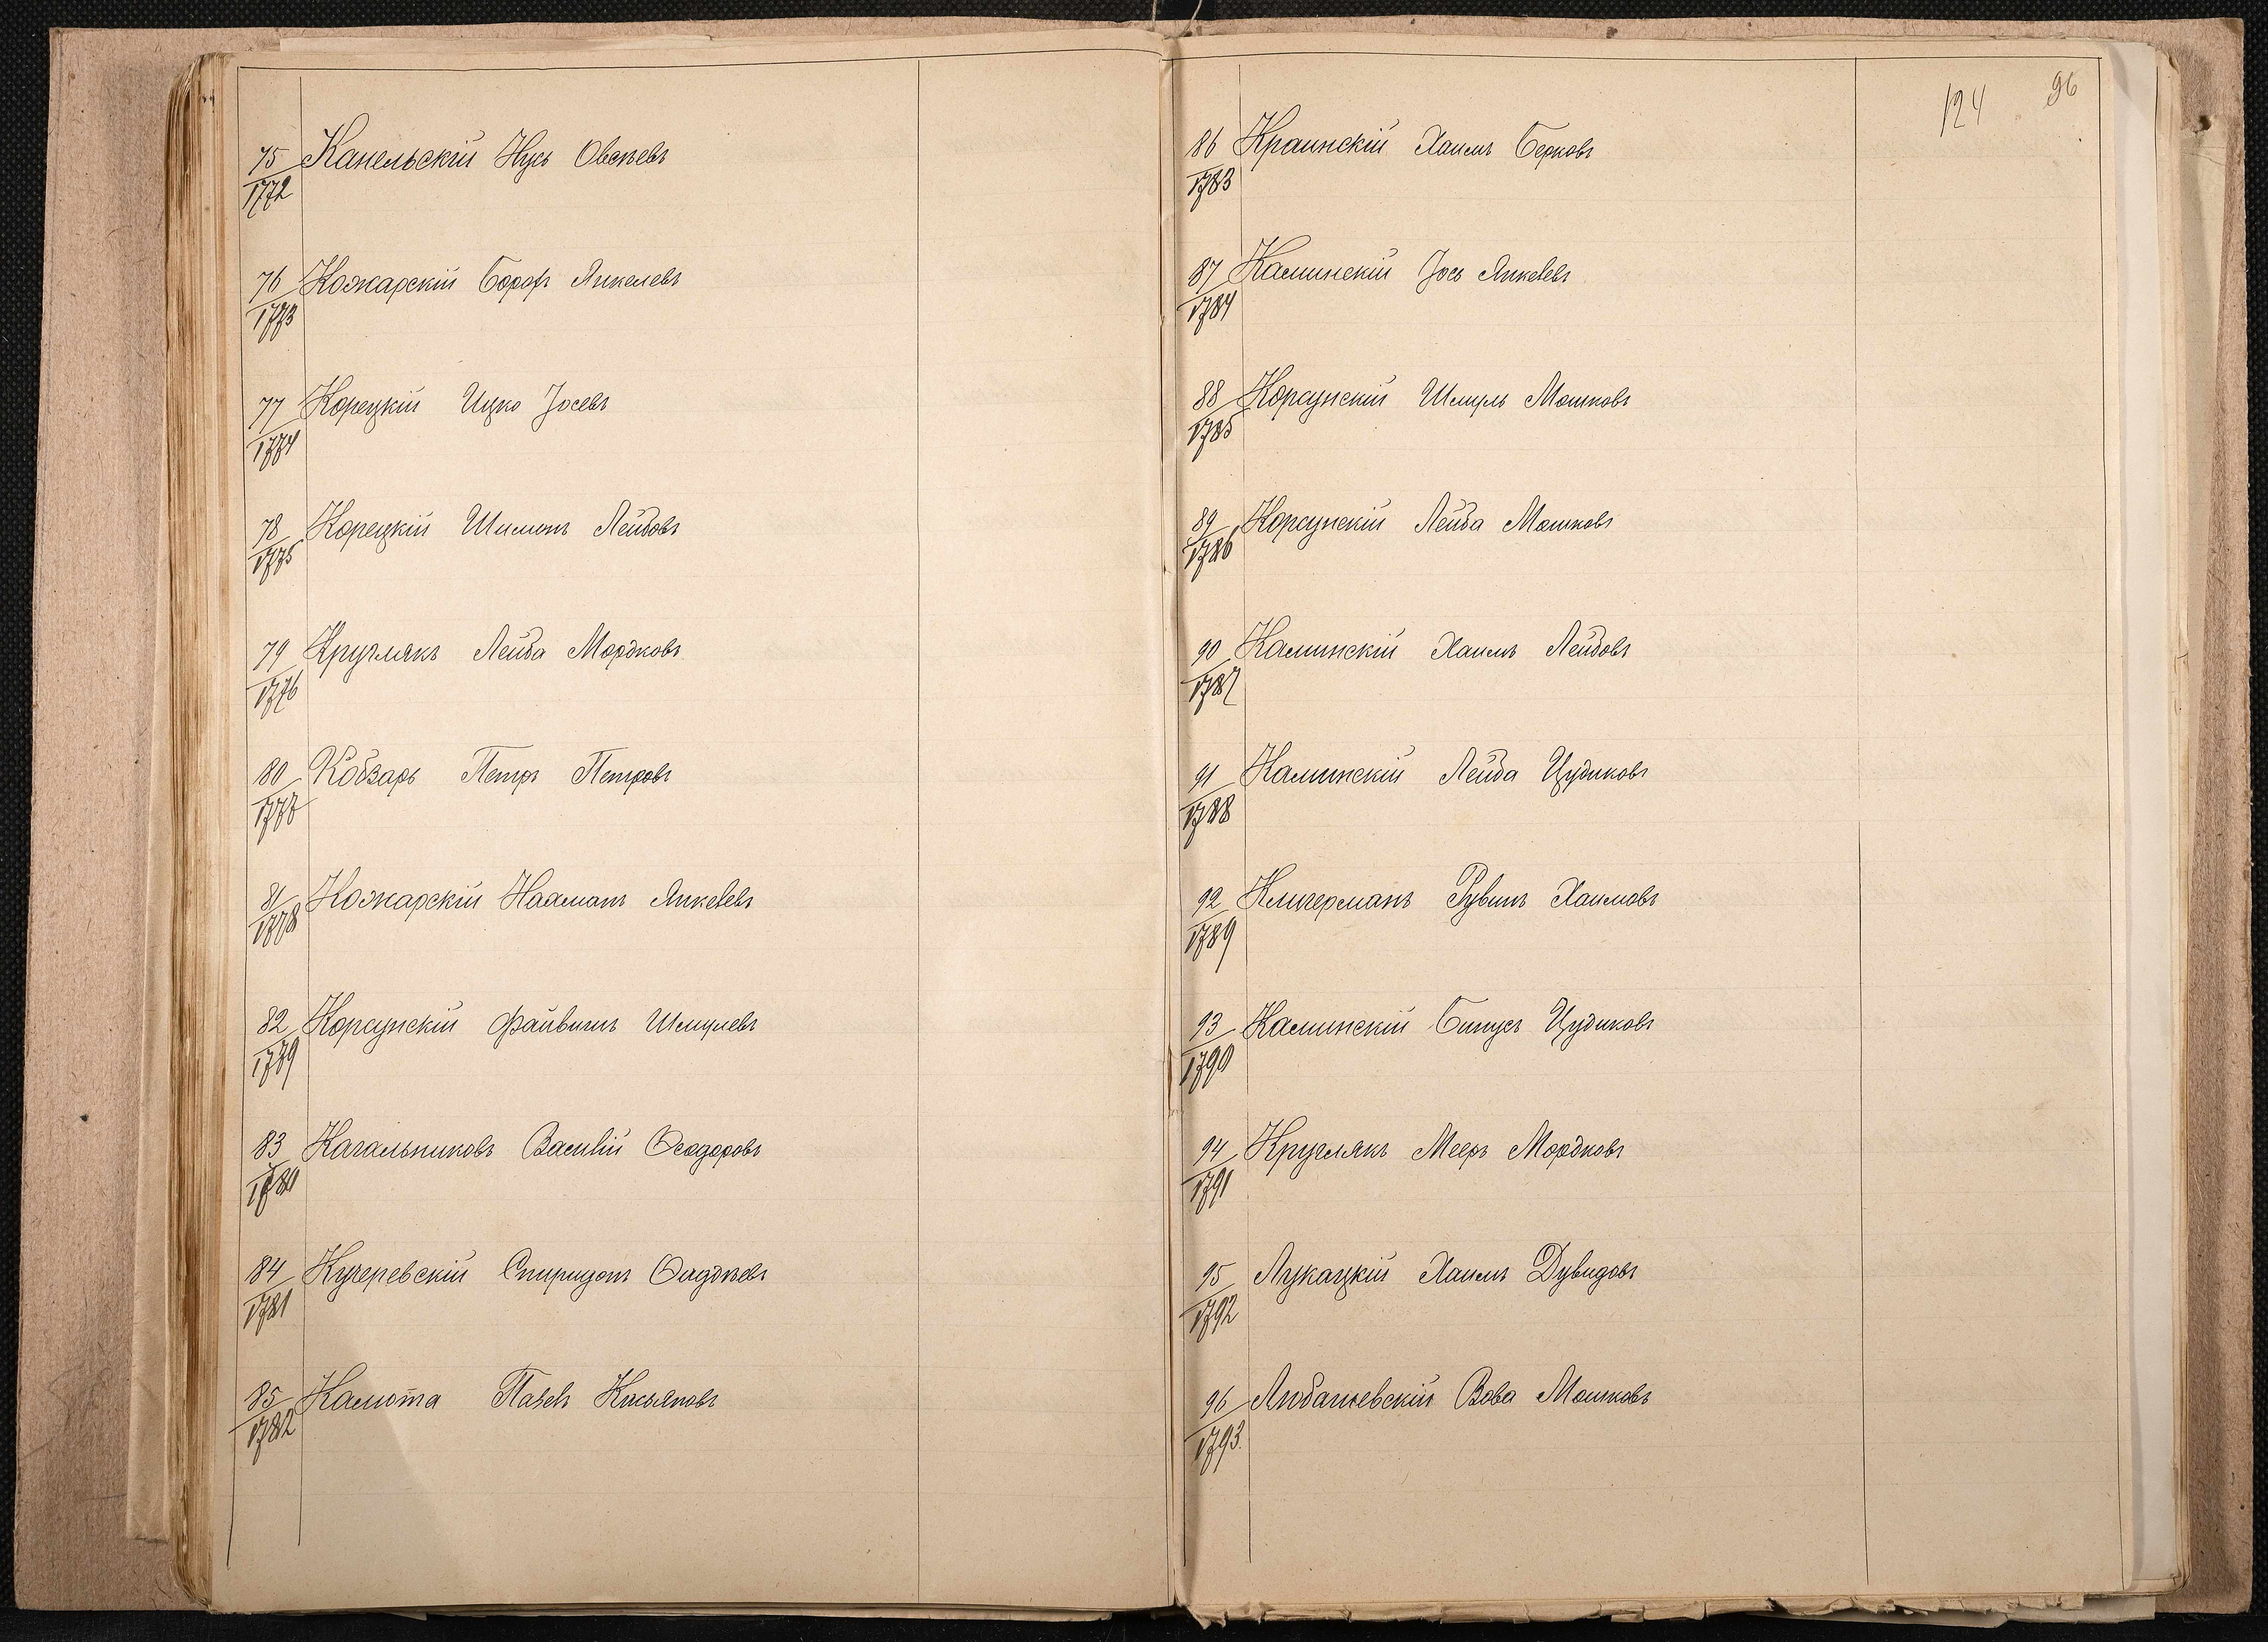 75/1772 Канельскій Нусь Овсѣевъ
76/1773 Кожарскій Борохъ Янкелевъ
77/1774 Корецкій Ицко Іосевъ
78/1775 Корецкій Шимонъ Лейбовъ
79/1776 Круглякъ Лейба Мордковъ
80/1777 Кобзарь Петръ Петровъ
81/1778 Кожарскій Нахманъ Янкелевъ
82/1779 Корсунскій Файвишъ Шмулевъ
83/1780 Кагальниковъ Василій Ѳеодоровъ
84/1781 Кучеревскій Спиридонъ Ѳаддѣевъ
85/1782 Калюта Павелъ Касьяновъ
124 96
86/1783 Краинскій Хаимъ Берковъ
87/1784 Калинскій Іось Янкелевъ
88/1785 Корсунскій Шмуль Мошковъ
89/1786 Корсунскій Лейба Мошковъ
90/1787 Калинскій Хаимъ Лейбовъ
91/1788 Калинскій Лейба Цудиковъ
92/1789 Клигерманъ Рувинъ Хаимовъ
93/1790 Калинскій Бинусъ Цудиковъ
94/1791 Круглякъ Мееръ Мордковъ
95/1792 Лукацкій Хаимъ Дувидовъ
96/1793 Любашевскій Вова Мошковъ